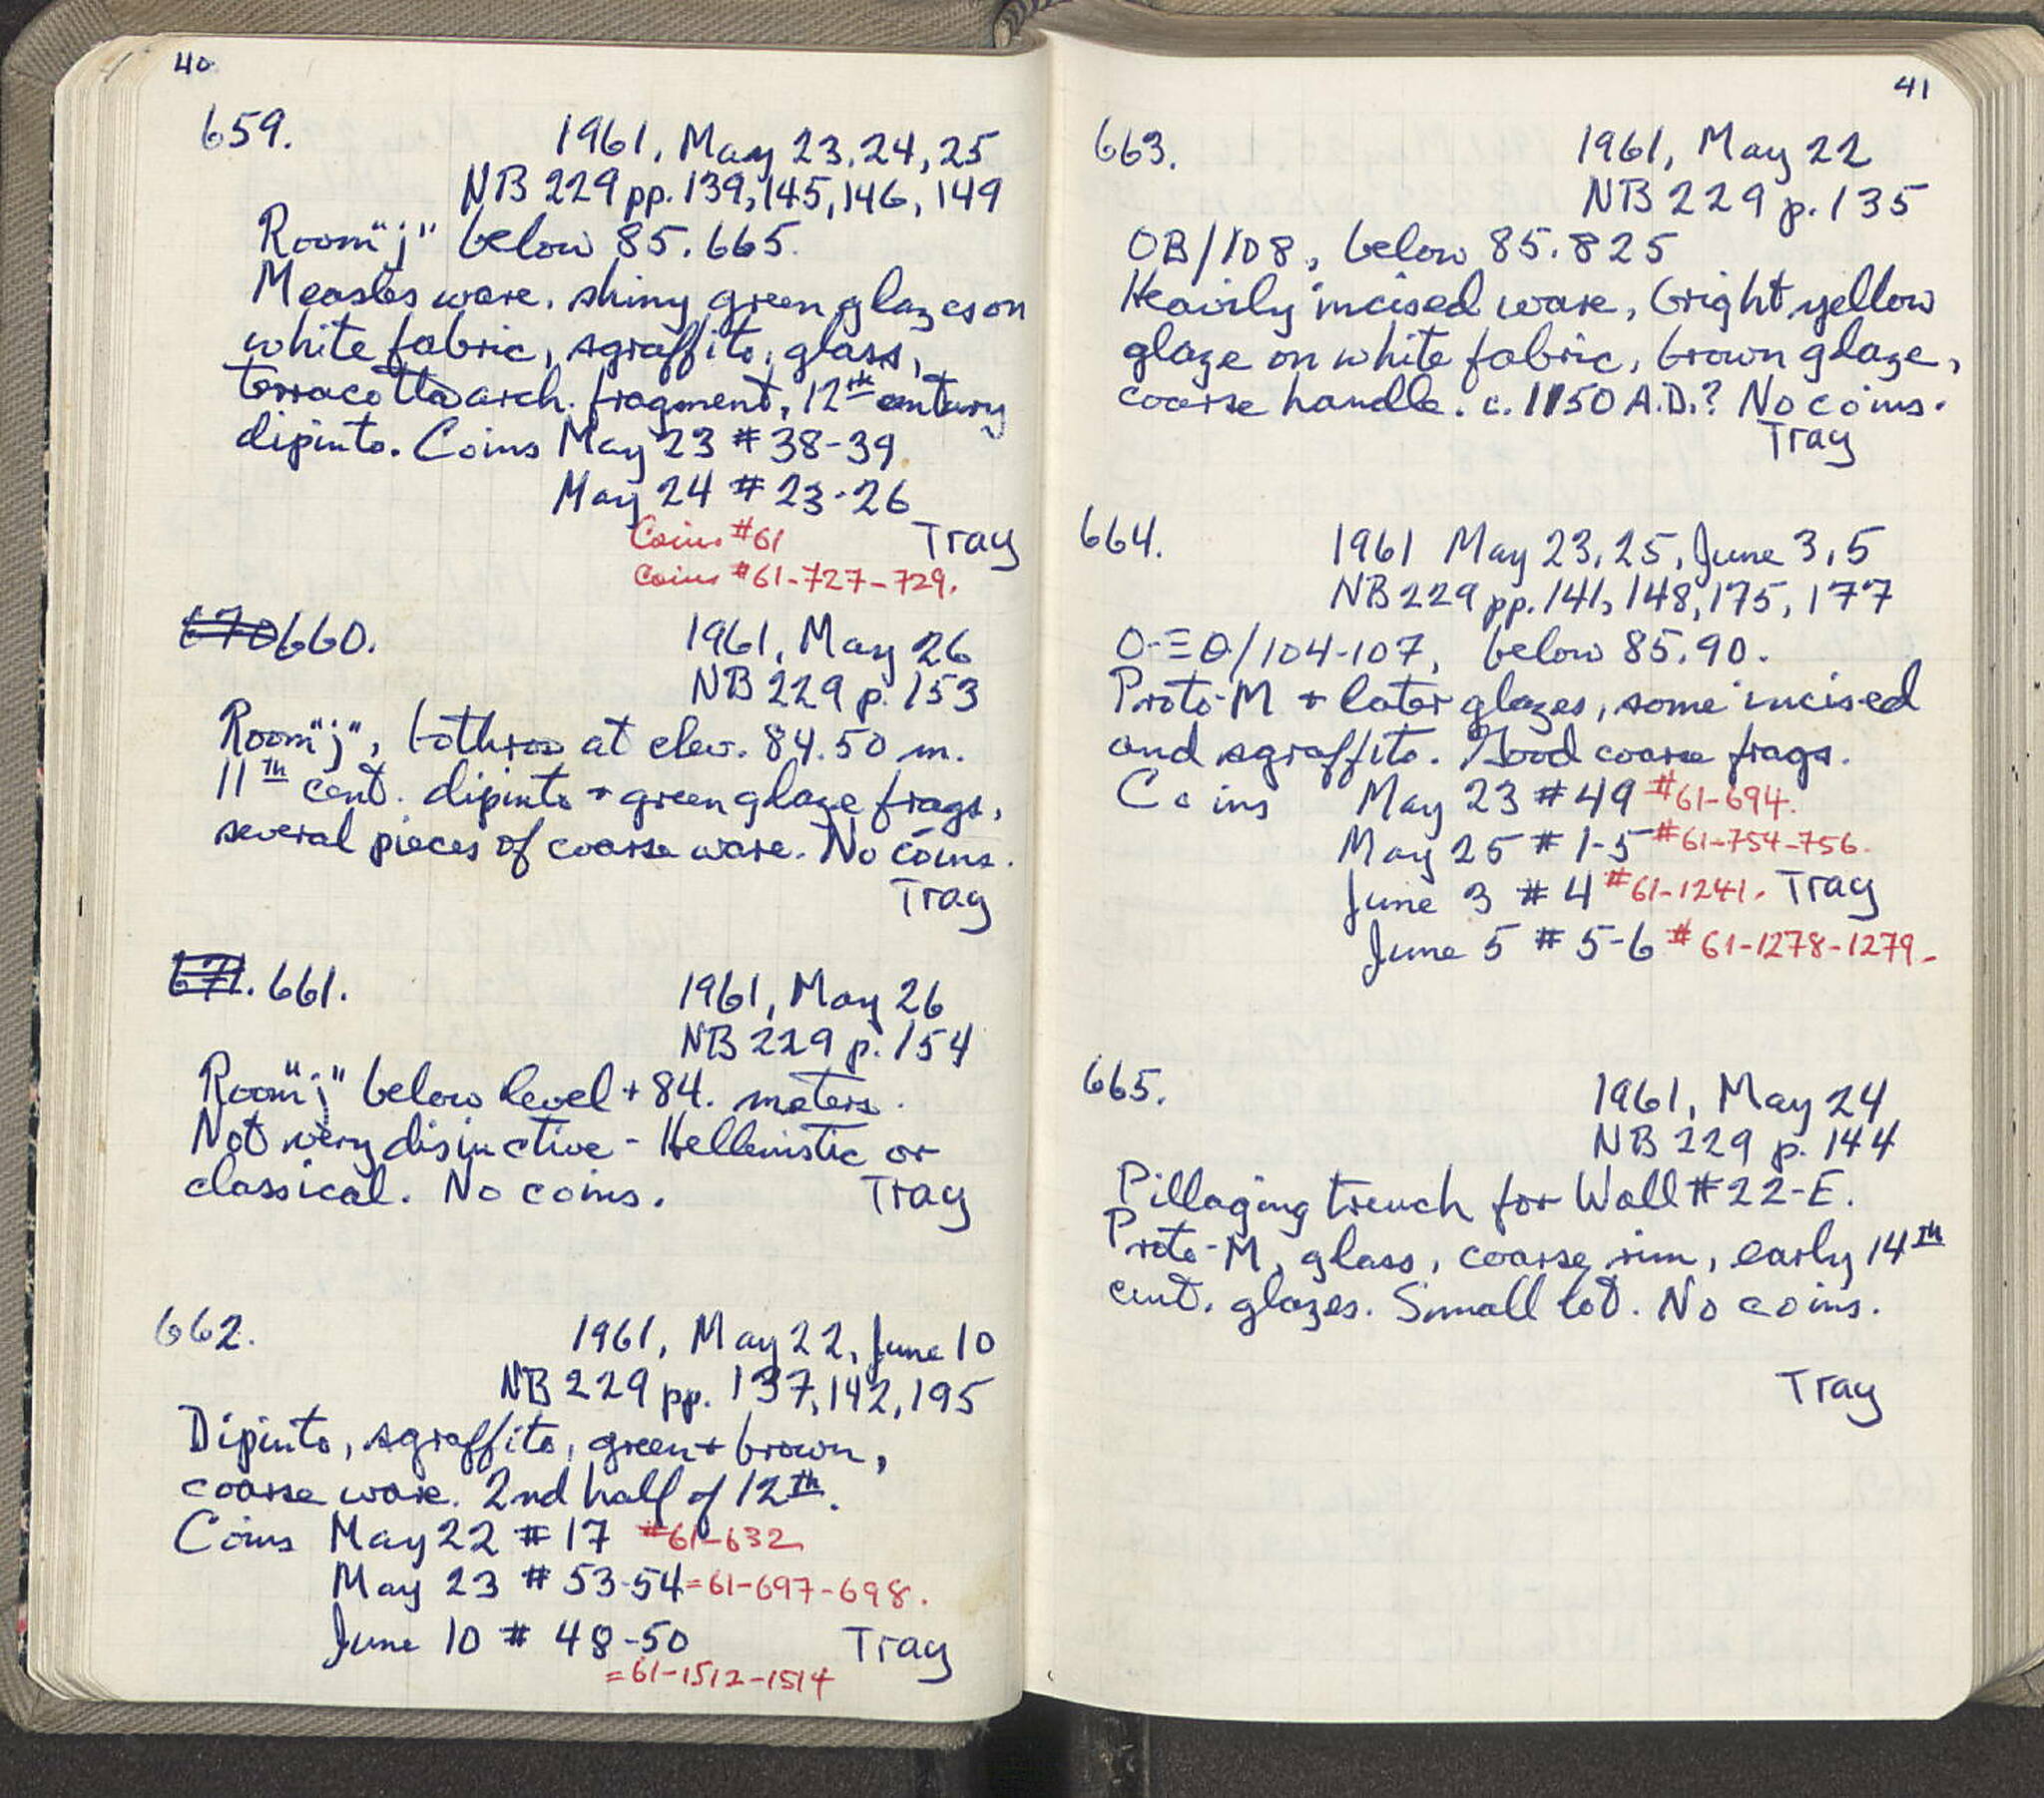 40
659.
1961, May 23, 24, 25
NB 229 pp. 139, 145, 146, 149
Room "j" below 85.665.
Measles ware. shiny green glazes on
white fabric, sgraffito, glass,
terracotta arch. fragment, 12th century
dipinto. Coins May 23 # 38-39
May 24 # 23-26
Coins #61
Tray
Coins #61-727-729.
670 660.
1961, May 26
NB 229 p. 153
Room "j", bothros at elev. 84.50 m.
11th cent. dipinto + green glaze frags,
several pieces of coarse ware. No coins.
Tray
671. 661.
1961, May 26
NB 229 p. 154
Room "j" below level + 84. meters.
Not very disinctive - Hellenistic or
classical. No coins. Tray
662.
1961, May 22, June 10
NB 229 pp. 137, 142, 195
Dipinto, sgraffito, green + brown,
coarse ware. 2nd half of 12th.
Coins May 22 # 17 #61-632
May 23 # 53-54 = 61-697-698.
June 10 # 48-50 Tray
= 61-1512-1514
41
663.
1961, May 22
NB 229 p. 135
OB/108, below 85.825
Heavily incised ware, bright yellow
glaze on white fabric, brown glaze,
coarse handle. c. 1150 A.D.? No coins.
Tray
664.
1961 May 23, 25, June 3, 5
NB 229 pp. 141, 148, 175, 177
O-ΞΘ/104-107, below 85.90.
Proto-M + later glazes, some incised
and sgraffito. Good coarse frags.
Coins May 23 # 49 #61-694.
May 25 # 1-5 #61-754-756.
June 3 # 4 #61-1241. Tray
June 5 # 5-6 # 61-1278-1279.
665.
1961, May 24
NB 229 p. 144
Pillaging trench for Wall # 22-E.
Proto-M, glass, coarse rim, early 14th
cent. glazes. Small lot. No coins.
Tray